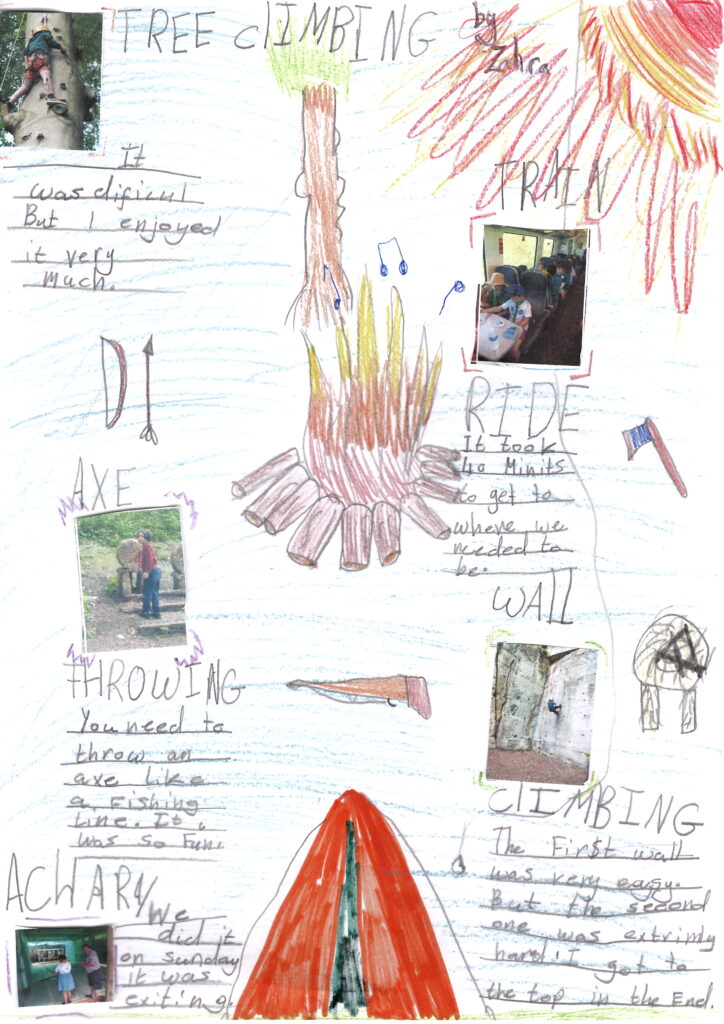 TREE CLIMBING
by
Zahra
It
was dificul
But I enjoyed
it very
much.
TRAIN
RIDE
It took
40 Minits
to get to
where we
needed to
be.
AXE
THROWING
You need to
throw an
axe like
a Fishing
Line. It
was so Fun.
WALL
CLIMBING
The First wall
was very easy.
But the second
one was extrimly
hard! I got to
the top in the End.
ACWARY
We
did it
on sunday
it was
exiting.